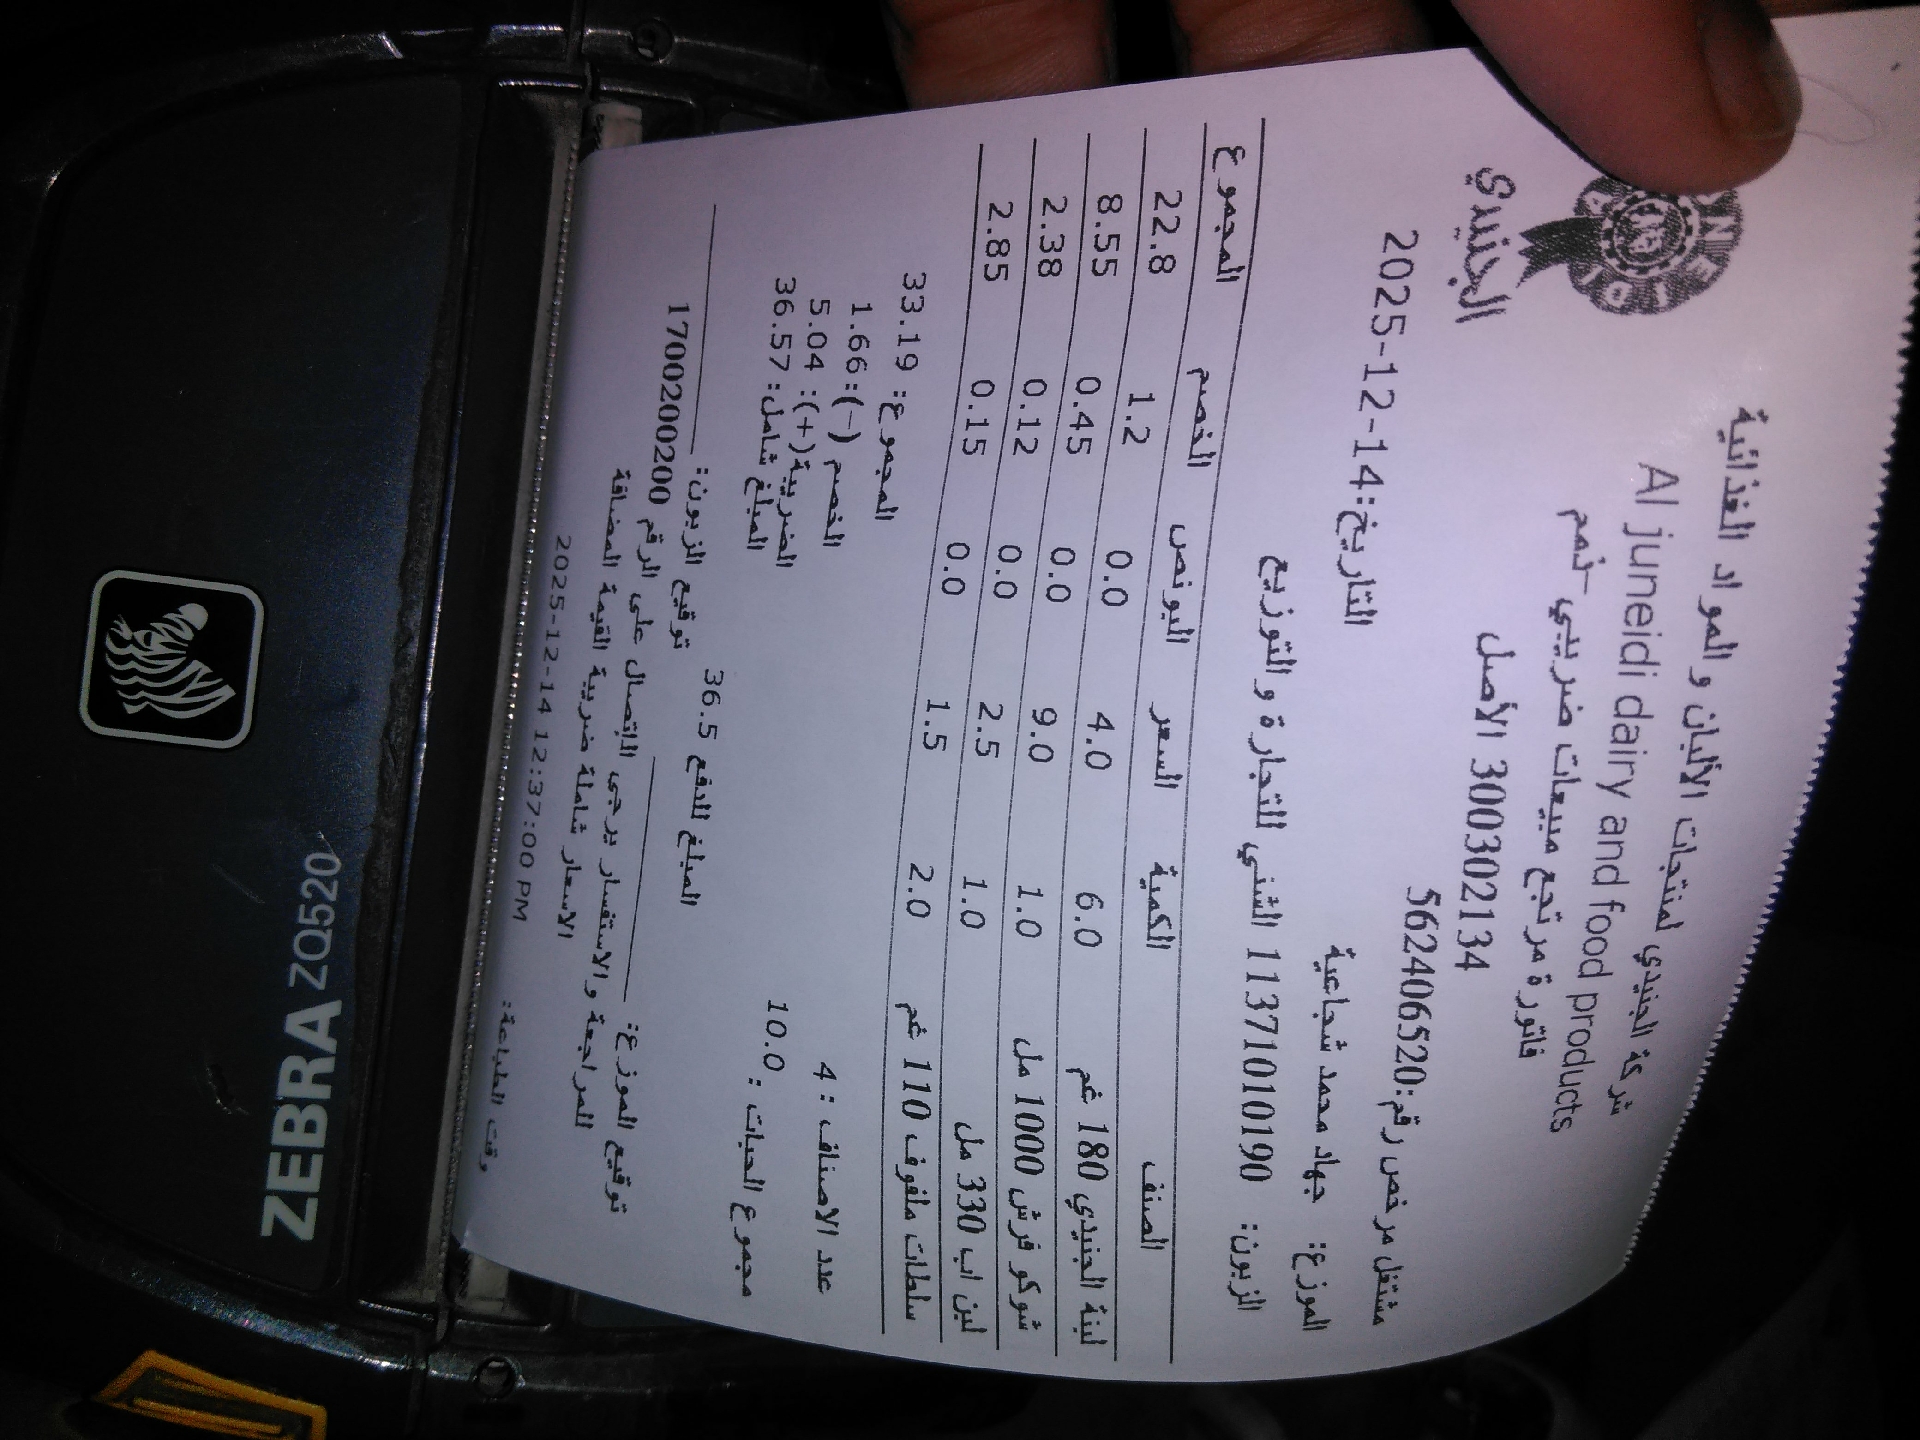 شركة الجنيدي لمنتجات الألبان و المواد الغذائية
Al juneidi dairy and food products
فاتورة مرتجع مبيعات ضريبي -تمم
300302134 الأصل
الجنيدي
مشتغل مرخص رقم:562406520
التاريخ:2025-12-14
الموزع: جهاد محمد شجاعية
الزبون: 1137101010190 الشني للتجارة و التوزيع
الصنف الكمية السعر البونص الخصم المجموع
لبنة الجنيدي 180 غم 6.0 4.0 0.0 1.2 22.8
شوكو فرش 1000 مل 1.0 9.0 0.0 0.45 8.55
لبن اب 330 مل 1.0 2.5 0.0 0.12 2.38
سلطات ملفوف 110 غم 2.0 1.5 0.0 0.15 2.85
المجموع: 33.19
عدد الاصناف : 4 الخصم (-):1.66
الضريبة(+): 5.04
مجموع الحبات : 10.0 المبلغ شامل: 36.57
المبلغ للدفع 36.5
توقيع الموزع: توقيع الزبون:
للمراجعة و الاستفسار يرجى الاتصال على الرقم 1700200200
الاسعار شاملة ضريبة القيمة المضافة
وقت الطباعة: 2025-12-14 12:37:00 PM
ZEBRA ZQ520